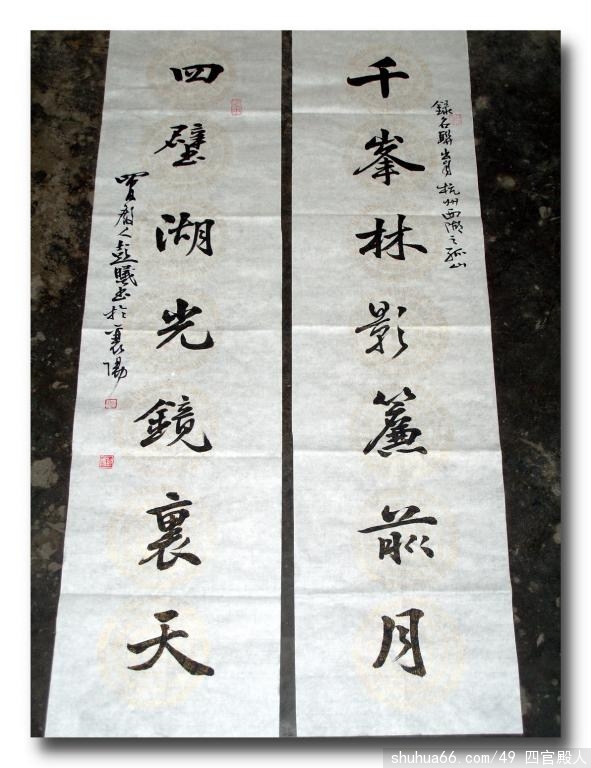 千峯林影簾前月
録名聯出自杭州西湖之孤山
四壁湖光鏡裏天
書於襄陽
shuhua66.com/49 四官殿人